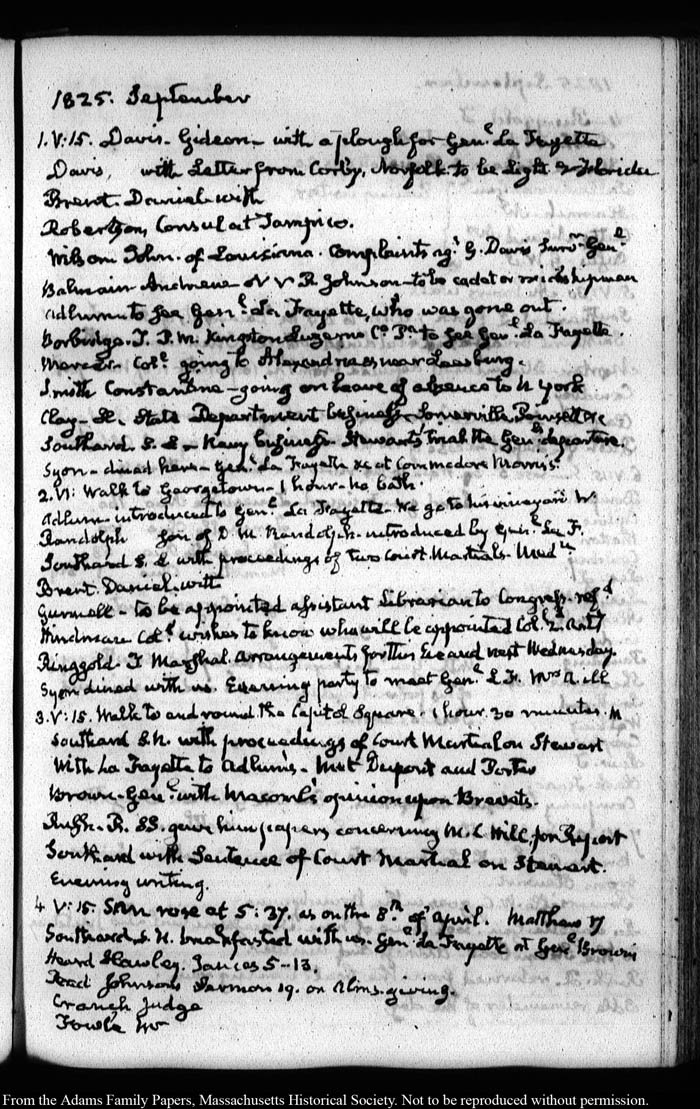 1825. September
1. V:15. Davis. Gideon - with a plough for Genl. La Fayette
Davis, with Letter from Corby, Norfolk to be Light
Brent. Daniel with
Robertson, Consul at Tampico.
Wilson John. of Louisiana. Complaints agt. G. Davis Survr. Genl.
Balmain Andrew V R Johnson - to be cadet or midshipman
Adlum to see Genl. La Fayette, who was gone out.
T. P. M. Kingston Luzerne Co. Pa. to see Genl. La Fayette.
Mercer. Coll. going to near Leesburg.
Smith Constantine - going on leave of absence to N York
Clay - St. State Department business Somerville, Poinsett &c
Southard. S. L - Navy business - Stewart's trial the Genl's departure.
Syon - dined here - Genl. La Fayette &c at Commodore Morris's.
2. VI: Walk to Georgetown - 1 hour - no bath.
Adlum - introduced to Genl. La Fayette - We go to his vineyard W
Randolph son of D. M. Randolph - introduced by Genl. La F.
Southard S. L with proceedings of two Court Martials - Medn.
Brent. Daniel. with
to be appointed assistant Librarian to Congress. refd.
Hindman Coll. wishes to know who will be appointed Col. 2. Arty
Ringgold. T Marshal. Arrangements for this Eve and next Wednesday.
Syon dined with us. Evening party to meet Genl. L F. Mrs A. ill
3. V:15. Walk to and round the Capitol Square. 1 hour 30 minutes. M
Southard S. L. with proceedings of Court Martial on Stewart
With La Fayette to Adlum's. Met Dupont and Porter
Brown - Genl. with Macomb's opinion upon Brevets.
Rush. R. SS. gave him papers concerning M. C Hill, for Report
Southard with Sentence of Court Martial on Stewart.
Evening writing.
4 V:15. Sun rose at 5:37. as on the 8th of April. Matthew 17
Southard. S. L. breakfasted with us. Genl. La Fayette at Genl. Brown's
Heard Hawley. James 5-13.
Read Johnson's Sermon 19. on Alms-giving.
Cranch Judge
Fowle Mr
From the Adams Family Papers, Massachusetts Historical Society. Not to be reproduced without permission.